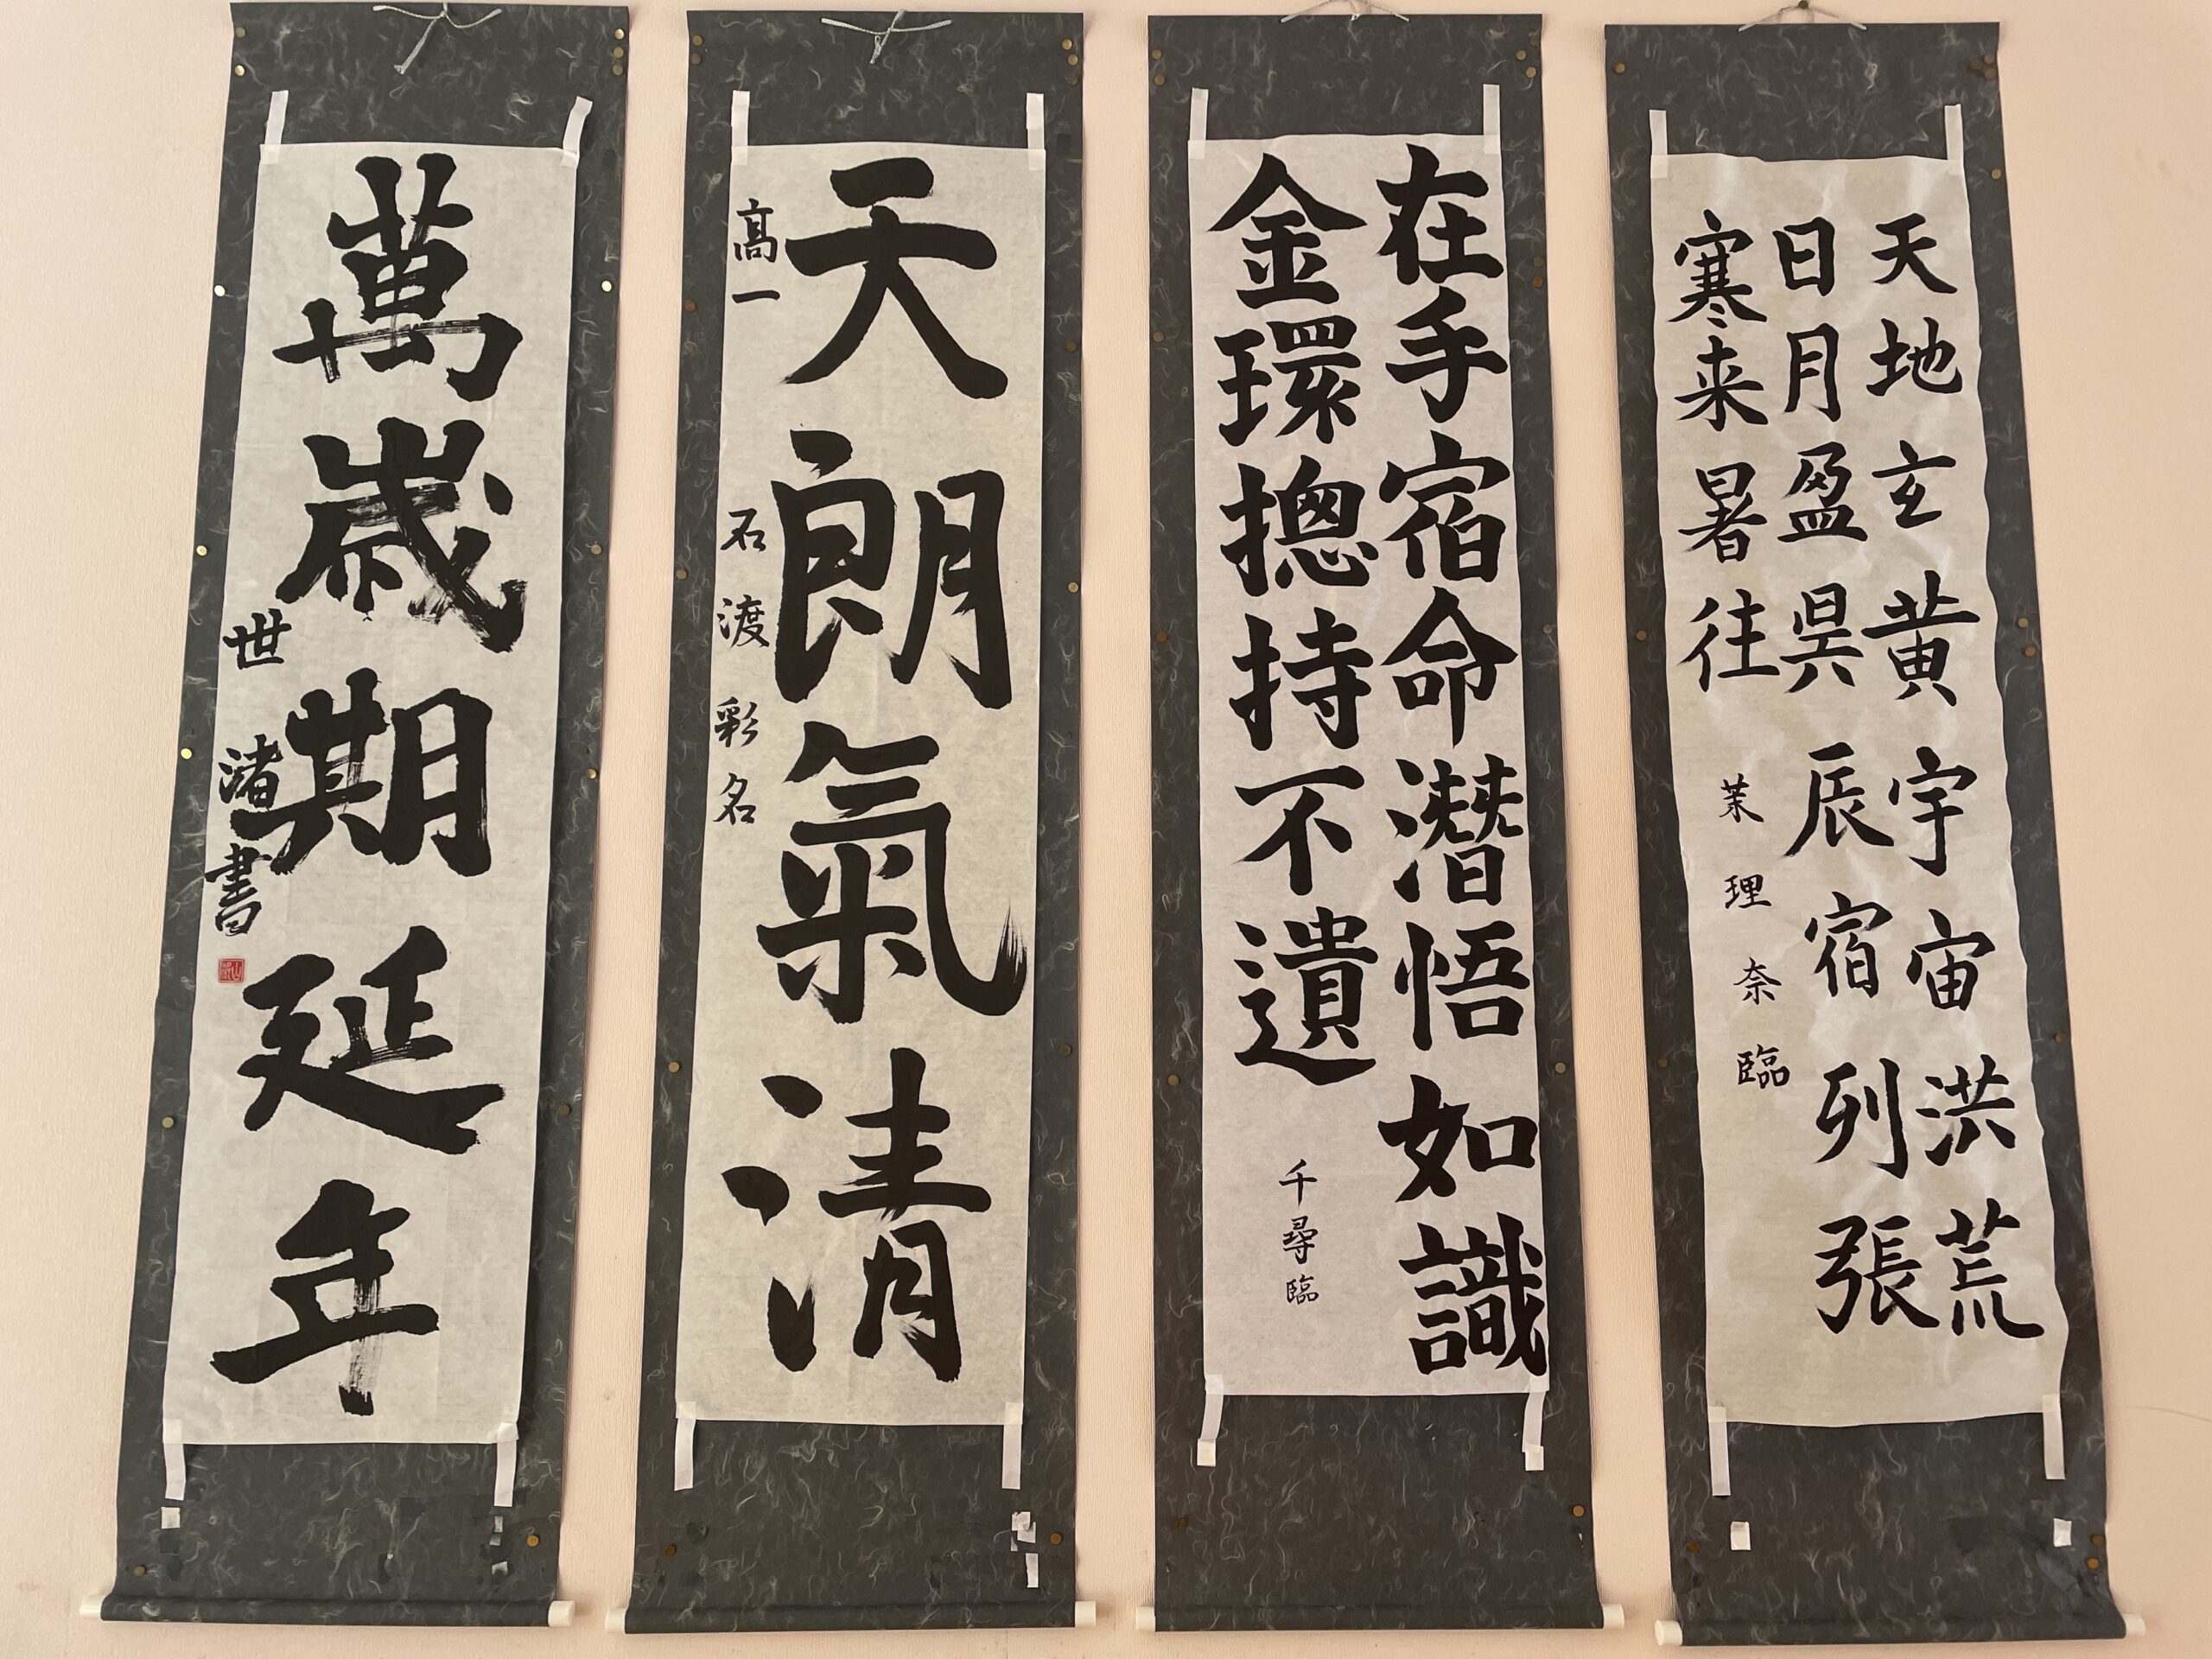 天地玄黄宇宙洪荒
日月盈昃辰宿列張
寒来暑往
茉理奈臨
在手宿命潜悟如識
金環摠持不遺
千尋臨
天朗氣清
高一
石渡彩名
萬歳期延年
世渚書